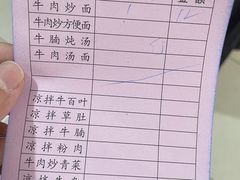 金 额
牛 肉 炒 面 1 12
牛肉炒方便面
牛 腩 炖 汤
牛 肉 汤 面
凉 拌 牛 百 叶
凉 拌 草 肚
凉 拌 牛 腩
凉 拌 粉 肉
牛肉炒青菜